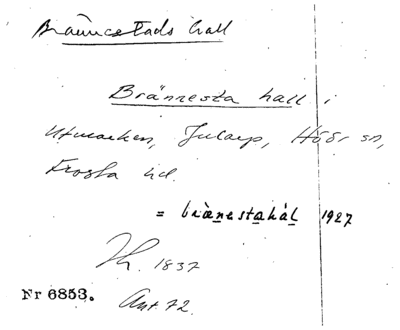 Brännestads hall
Brännesta hall i
Utmarken, Jularp, Höör sn,
Frosta hd.
= brænestahál 1927
Th. 1837
Nr 6853. Ant 72.